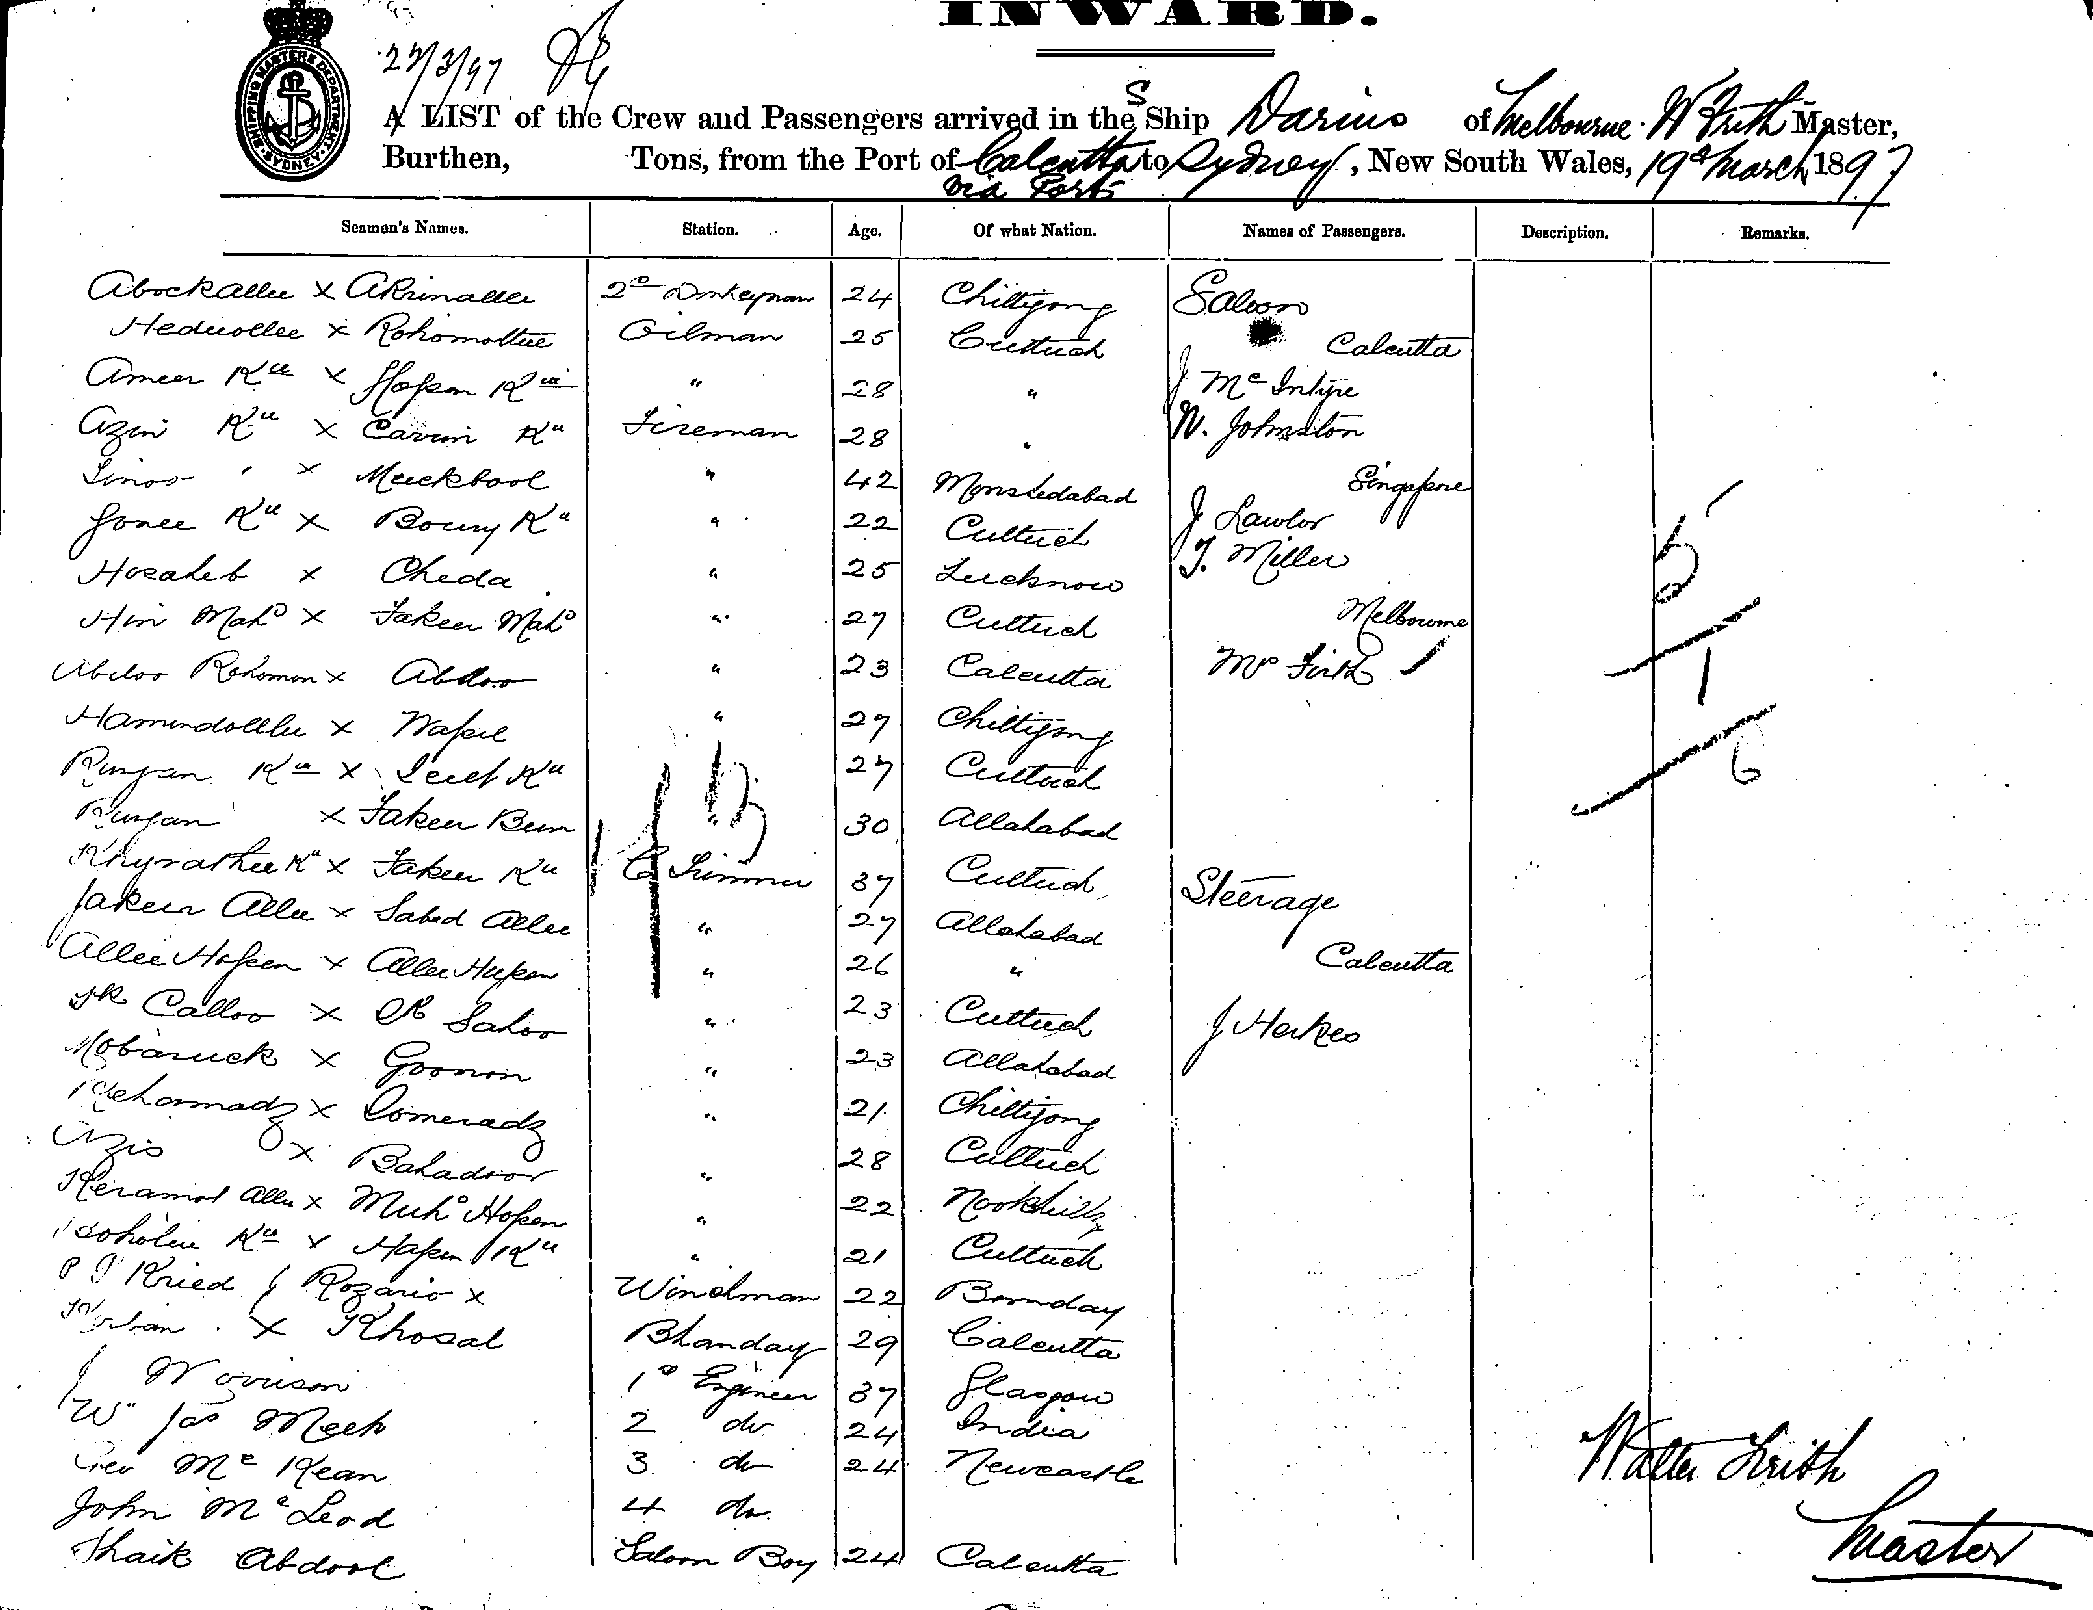 INWARD.
22/3/97
SHIPPING MASTERS DEPARTMENT SYDNEY
A LIST of the Crew and Passengers arrived in the S Ship Darius of Melbourne. W Frith Master,
Burthen, Tons, from the Port of Calcutta to Sydney, New South Wales, 19th March 1897
via Ports
Seaman's Names. Station. Age. Of what Nation. Names of Passengers. Description. Remarks.
Abockallee x Akrimallee 2d Donkeyman 24 Chittigong Saloon
Rohomottue Oilman 25 Cuttuck Calcutta
Ameer Kn x Hossen Kn " 28 " J McIntyre
Azim Kn x Carim Kn Fireman 28 " W. Johnston
x Muckbool " 42 Monshedabad Singapore
Jonee Kn x Boury Kn " 22 Cuttuck J Lawlor
Hosaheb x Cheda " 25 Lucknow T. Miller
Him Mahd x Fakeer Mahd " 27 Cuttuck Melbourne
Abdoo Rohomon x Abdoo " 23 Calcutta Mrs Firth
x " 27 Chittigong
Kn x Kn " 27 Cuttuck
Runjan x Fakeer " 30 Allahabad
x Fakeer Kn C Trimmer 37 Cuttuck Steerage
Fakeer Allee x Sabed Allee " 27 Allahabad
Allee Hossen x Allee Hossen " 26 " Calcutta
Sk Calloo x Sk Sahoo " 23 Cuttuck J Herkes
Mobaruck x Goomon " 23 Allahabad
x " 21 Chittigong
Azis x Bahadoor " 28 Cuttuck
Keramot Allee x Muhd Hossen " 22
Kn x Hossen Kn " 21 Cuttuck
Rozario x Winchman 22 Bomday
x Khosal Bhanday 29 Calcutta
J Morrison 1st Engineer 37 Glasgow
Wm Jas Meek 2 do 24 India
Geo McKean 3 do 24 Newcastle
John McLeod 4 do
Shaik Abdool Saloon Boy 24 Calcutta
5
1
6
Walter Frith
Master